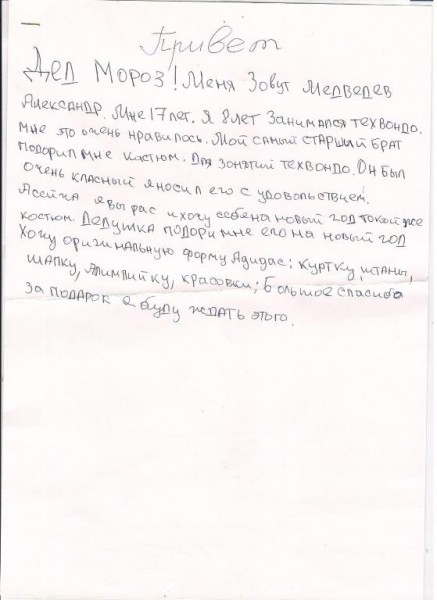 Привет
Дед Мороз! Меня Зовут Медведев
Александр. Мне 17 лет. Я 8 лет Занимался техвондо.
Мне это очень нравилось. Мой самый старший брат
подорил мне костюм. Для зонятий техвондо. Он был
очень класный я носил его с удовольствием.
Ассичя я вы рас и хочу себе на новый год токой же
костюм. Дедушка подори мне его на новый год
Хочу оригинальную форму Адидас: куртку, штаны,
шапку, Алимпийку, красовки; Большое спасибо
за подарок я буду ждать этого.